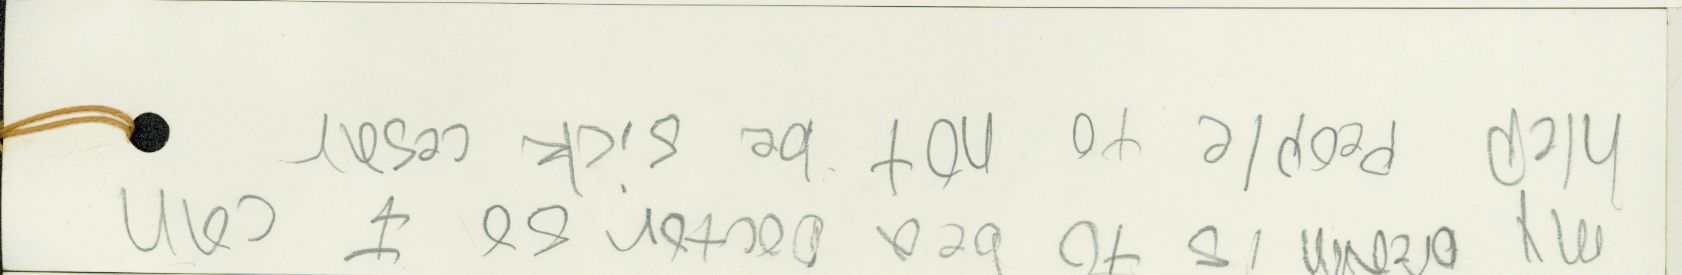 my Dream is to be a Doctor so I can
hlep people to not be sick cesar